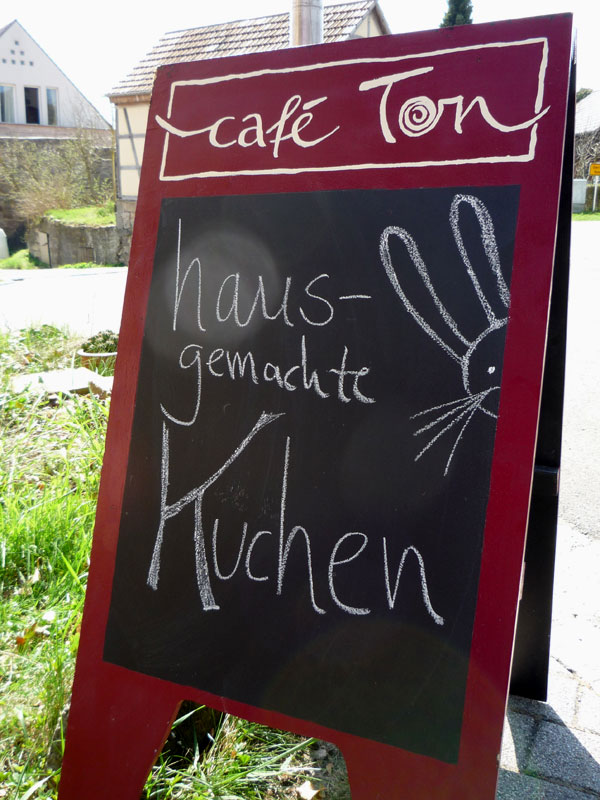 café Ton
haus-
gemachte
Kuchen